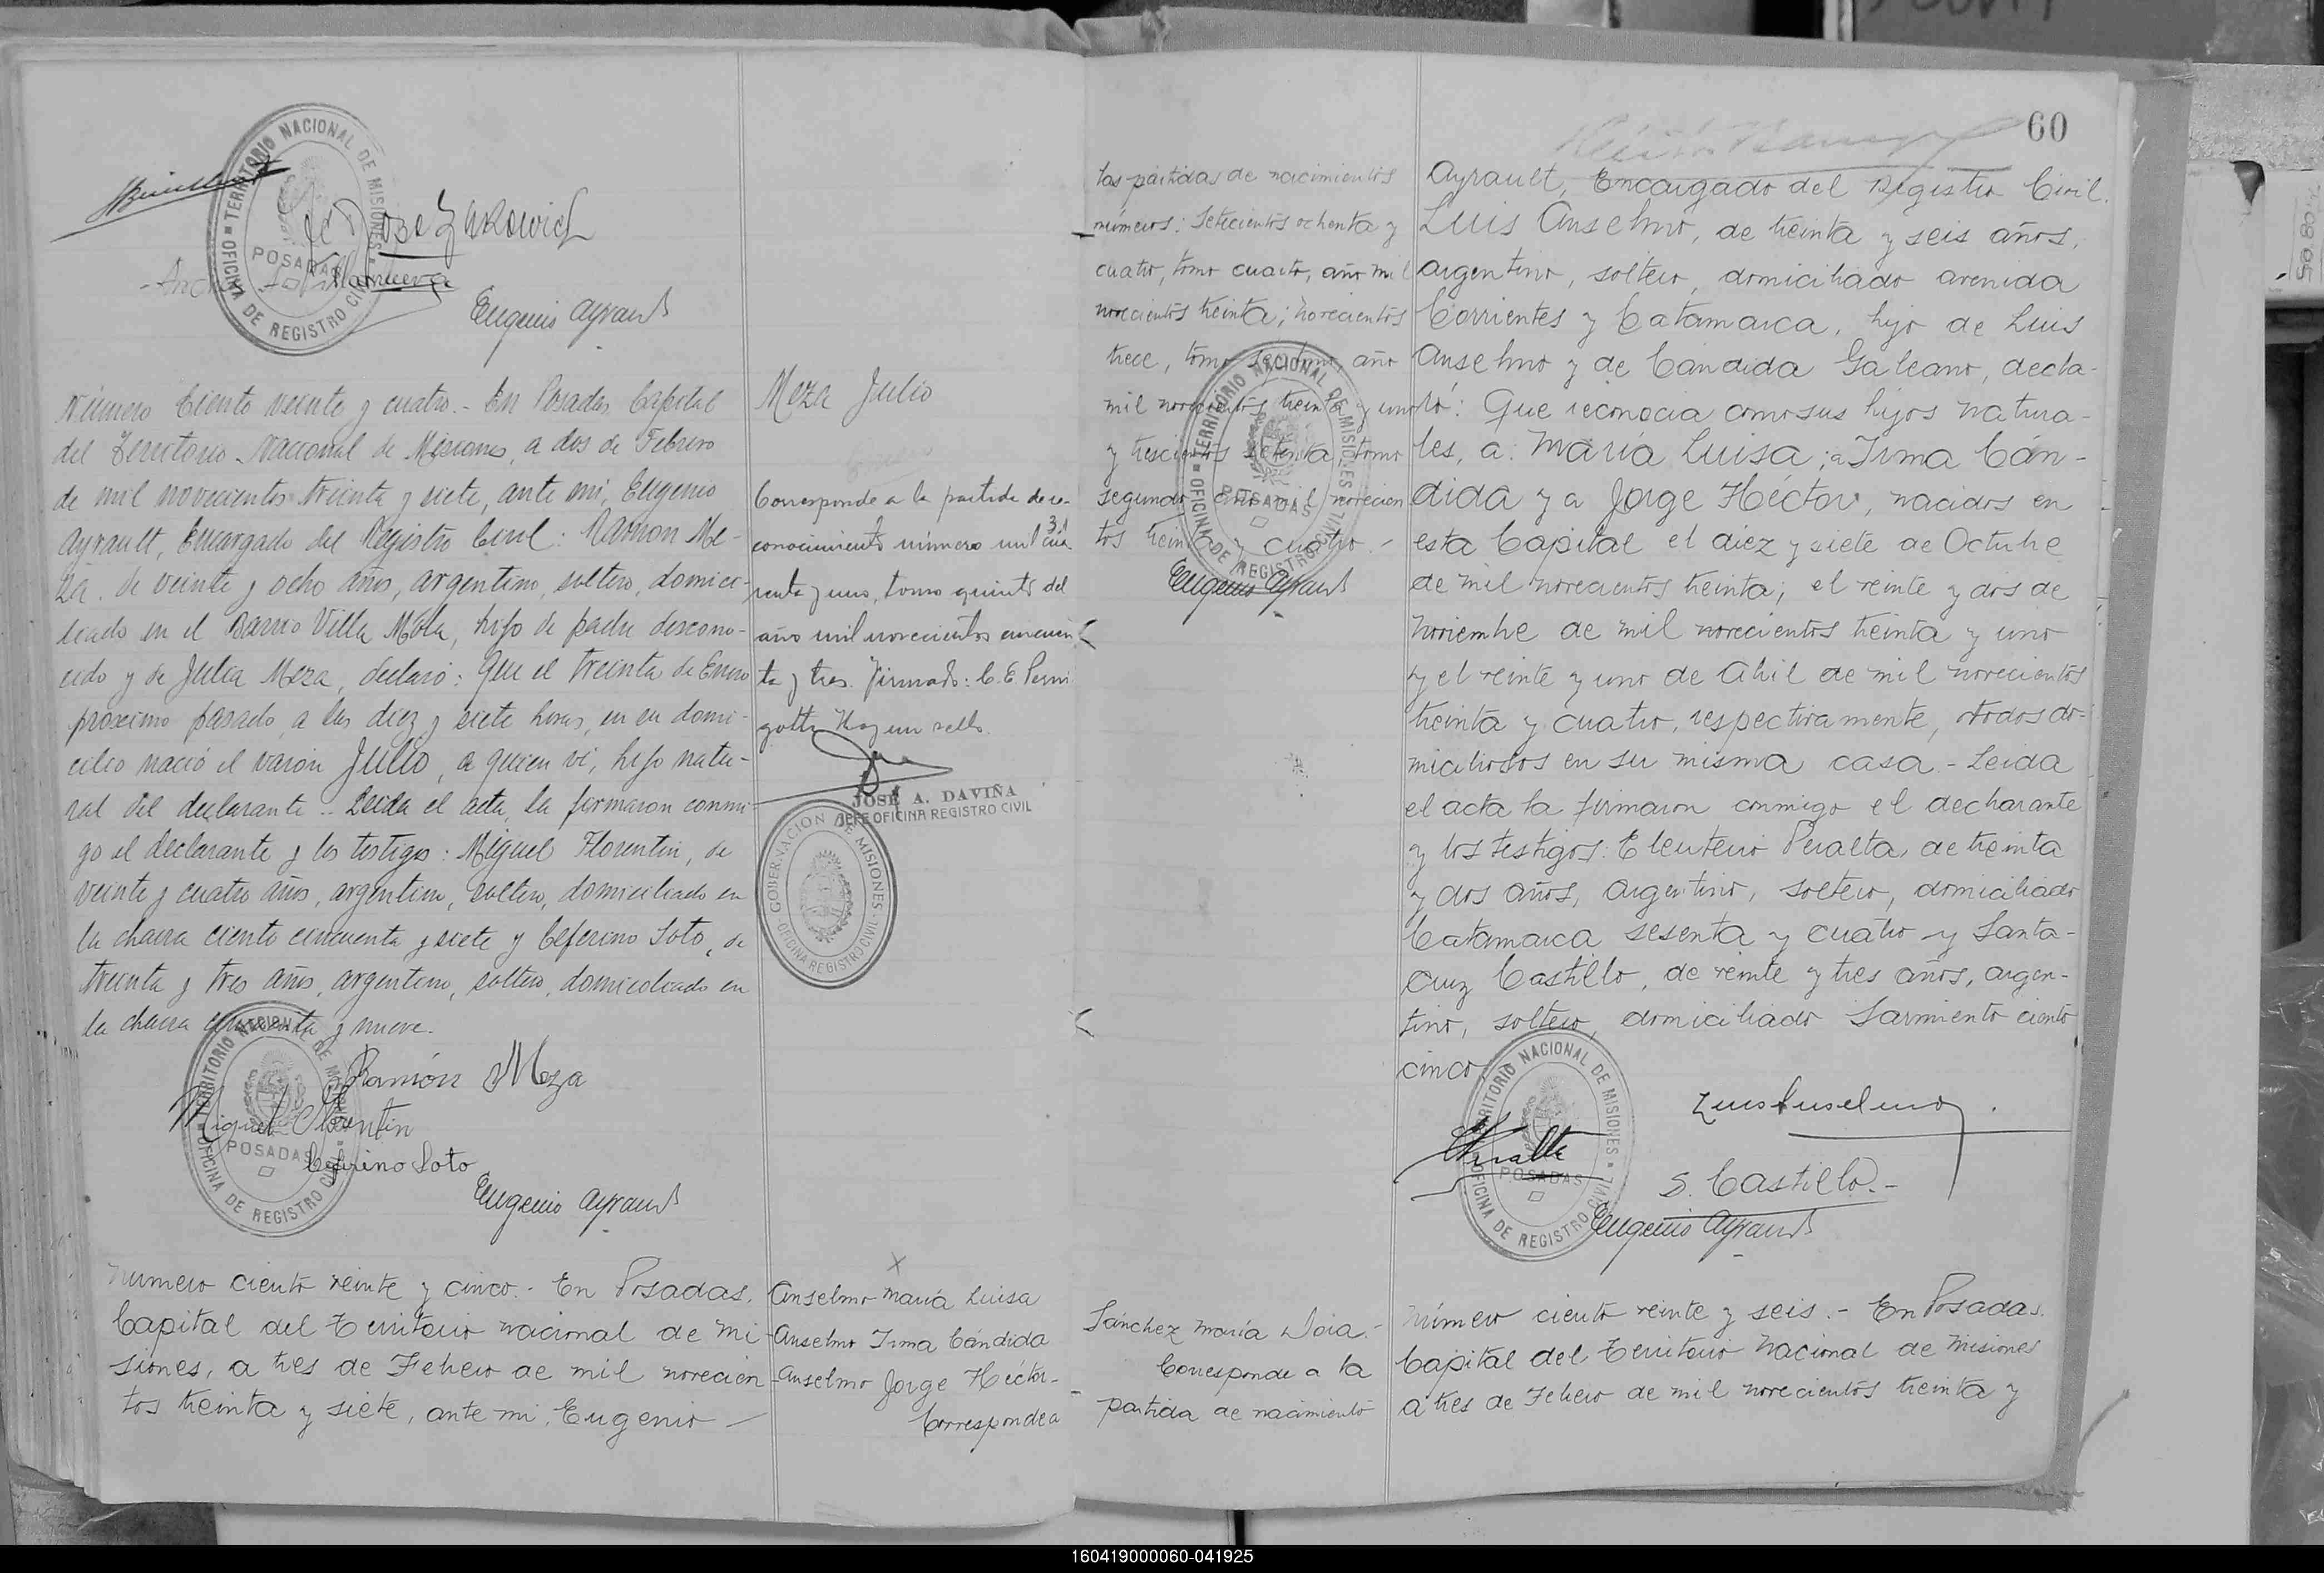 TERRITORIO NACIONAL DE MISIONES
POSADAS
OFICINA DE REGISTRO CIVIL
Eugenio Ayrault
Número Ciento veinte y cuatro.- En Posadas, Capital
del Territorio Nacional de Misiones, a dos de Febrero
de mil novecientos treinta y siete, ante mi, Eugenio
Ayrault, Encargado del Registro Civil: Ramon Me-
za, de veinte y ocho años, argentino, soltero, domici-
liado en el Barrio Villa Mola, hijo de padre descono-
cido y de Julia Meza, declaró: Que el treinta de Enero
proximo pasado, a las diez y siete horas, en su domi-
cilio nació el varón Julio, a quien vi, hijo natu-
ral del declarante.- Leida el acta, la firmaron conmi-
go el declarante y los testigos: Miguel Florentin, de
veinte y cuatro años, argentino, soltero, domiciliado en
la chacra ciento cincuenta y siete y Ceferino Soto, de
treinta y tres años, argentino, soltero, domiciliado en
la chacra cincuenta y nueve.
TERRITORIO NACIONAL DE MISIONES
POSADAS
OFICINA DE REGISTRO CIVIL
Ramón Meza
Miguel Florentin
Ceferino Soto
Eugenio Ayrault
Número ciento veinte y cinco.- En Posadas,
Capital del Territorio Nacional de Mi-
siones, a tres de Febrero de mil novecien
tos treinta y siete, ante mi, Eugenio
Meza Julio
Corresponde a la partida de re-
conocimiento número mil cua
31
renta y uno, tomo quinto del
año mil novecientos cincuen
ta y tres. Firmado: C. E. Perni
gotti. Hay un sello.
JOSÉ A. DAVIÑA
JEFE OFICINA REGISTRO CIVIL
GOBERNACION DE MISIONES
OFICINA REGISTRO CIVIL
X
Anselmo María Luisa
Anselmo Irma Cándida
Anselmo Jorge Héctor-
Corresponde a
las partidas de nacimientos
números: Setecientos ochenta y
cuatro, tomo cuarto, año mil
novecientos treinta; novecientos
trece, tomo séptimo, año
mil novecientos treinta y uno
y trescientos setenta, tomo
segundo, año mil novecien
tos treinta y cuatro.-
TERRITORIO NACIONAL DE MISIONES
POSADAS
OFICINA DE REGISTRO CIVIL
Eugenio Ayrault
Sánchez María Doia.-
Corresponde a la
partida de nacimiento
60
Ayrault, Encargado del Registro Civil.
Luis Anselmo, de treinta y seis años,
argentino, soltero, domiciliado avenida
Corrientes y Catamarca, hijo de Luis
Anselmo y de Cándida Galeano, decla-
ró: Que reconocia como sus hijos natura-
les, a: María Luisa; a Irma Cán-
dida y a Jorge Héctor, nacidos en
esta Capital el diez y siete de Octubre
de mil novecientos treinta; el veinte y dos de
Noviembre de mil novecientos treinta y uno
y el veinte y uno de Abril de mil novecientos
treinta y cuatro, respectivamente, todos do-
miciliados en su misma casa.- Leida
el acta la firmaron conmigo el declarante
y los testigos: Eleuterio Peralta, de treinta
y dos años, argentino, soltero, domiciliado
Catamarca sesenta y cuatro y Santa-
Cruz Castillo, de veinte y tres años, argen-
tino, soltero, domiciliado Sarmiento ciento
cinco.
TERRITORIO NACIONAL DE MISIONES
POSADAS
OFICINA DE REGISTRO CIVIL
Luis Anselmo
EPeralta
S. Castillo.-
Eugenio Ayrault
Número ciento veinte y seis.- En Posadas.
Capital del Territorio Nacional de Misiones
a tres de Febrero de mil novecientos treinta y
160419000060-041925